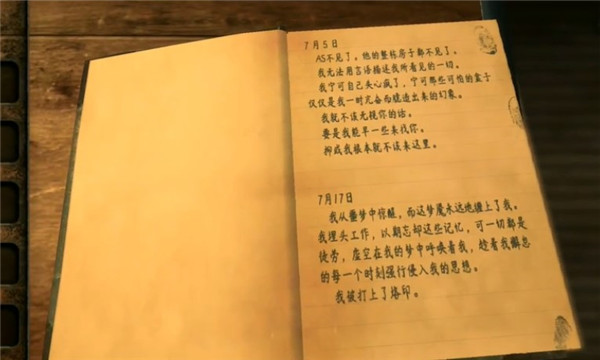 7月5日
AS不见了。他的整栋房子都不见了。
我无法用言语描述我所看见的一切。
我宁可自己失心疯了，宁可那些可怕的盒子
仅仅是我一时兴奋而臆造出来的幻象。
我就不该无视你的话。
要是我能早一些来找你。
抑或我根本就不该来这里。
7月17日
我从噩梦中惊醒，而这梦魇永远地缠上了我。
我埋头工作，以期忘却这些记忆，可一切都是
徒劳，虚空在我的梦中呼唤着我，趁着我懈怠
的每一个时刻强行侵入我的思想。
我被打上了烙印。